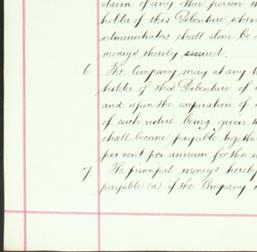 claim of any other person t
holder of this Debenture when
administrators shall alone be
moneys thereby secured.
6. The Company may at any t
holder of this Debenture of
and upon the expiration of
of such notice being given th
shall become payable together
per cent per annum for the
7. The principal moneys hereby
payable (a) if the Company